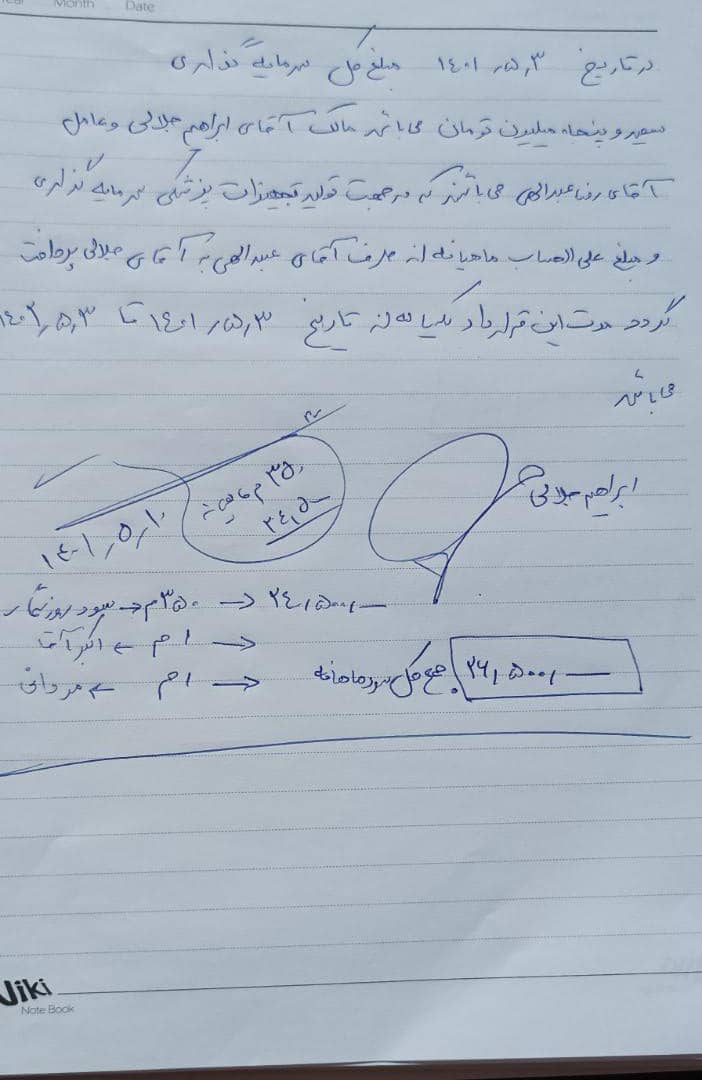 Month Date
در تاریخ ۱۴۰۱٫۵٫۳ مبلغ کل سرمایه گذاری
سیصد و پنجاه میلیون تومان می باشد مالک آقای ابراهیم جلالی و عامل
آقای رضا عبدالهی می باشند که در جهت تولید تجهیزات پزشکی سرمایه گذاری
و مبلغ علی الحساب ماهیانه از طرف آقای عبدالهی به آقای جلالی پرداخت
گردد مدت این قرارداد یکساله از تاریخ ۱۴۰۱٫۵٫۳ تا ۱۴۰۲٫۵٫۳
می باشد
ابراهیم جلالی
۳۵۰ م
۲۴٫۵۰۰
۱۴۰۱٫۵٫۱۰
۲۴٫۵۰۰٫ ← ۳۵۰م → سود روزشمار
← ۱م → اکبر آقا
← ۱م →
جمع کل سود ماهانه ۲۶٫۵۰۰٫
Niki
Note Book